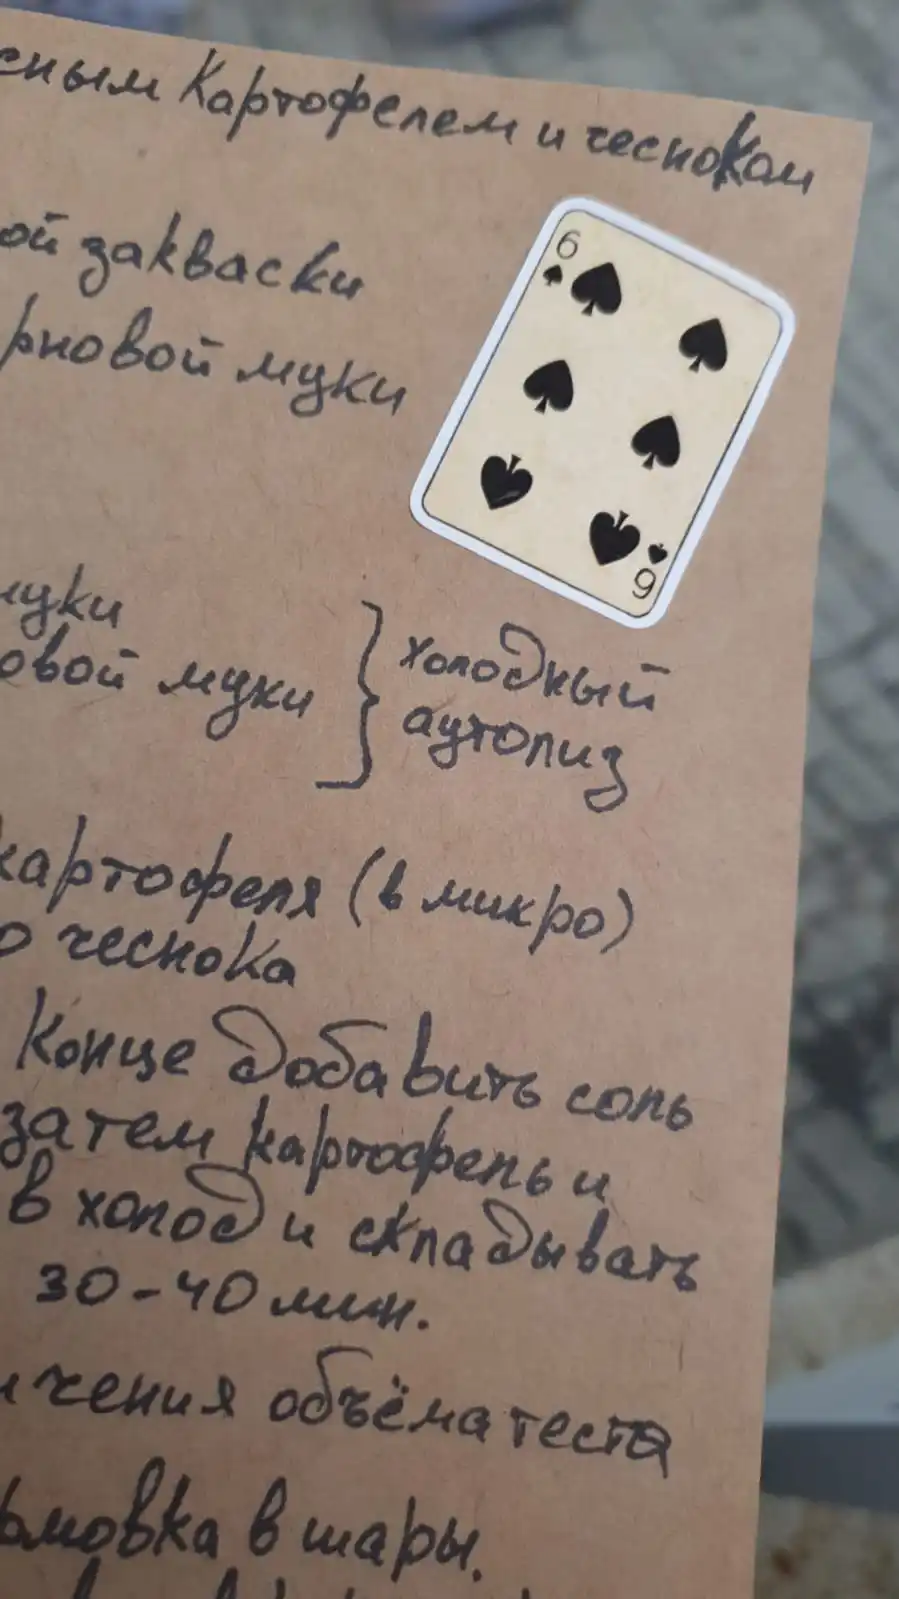 сным Картофелем и чесноком
ой закваски
рновой муки
6
6
муки
овой муки } холодный
аутолиз
картофеля (в микро)
о чеснока
Конце добавить соль
затем картофель и
в холод и складывать
30-40 мин.
чения объёма теста
рмовка в шары.